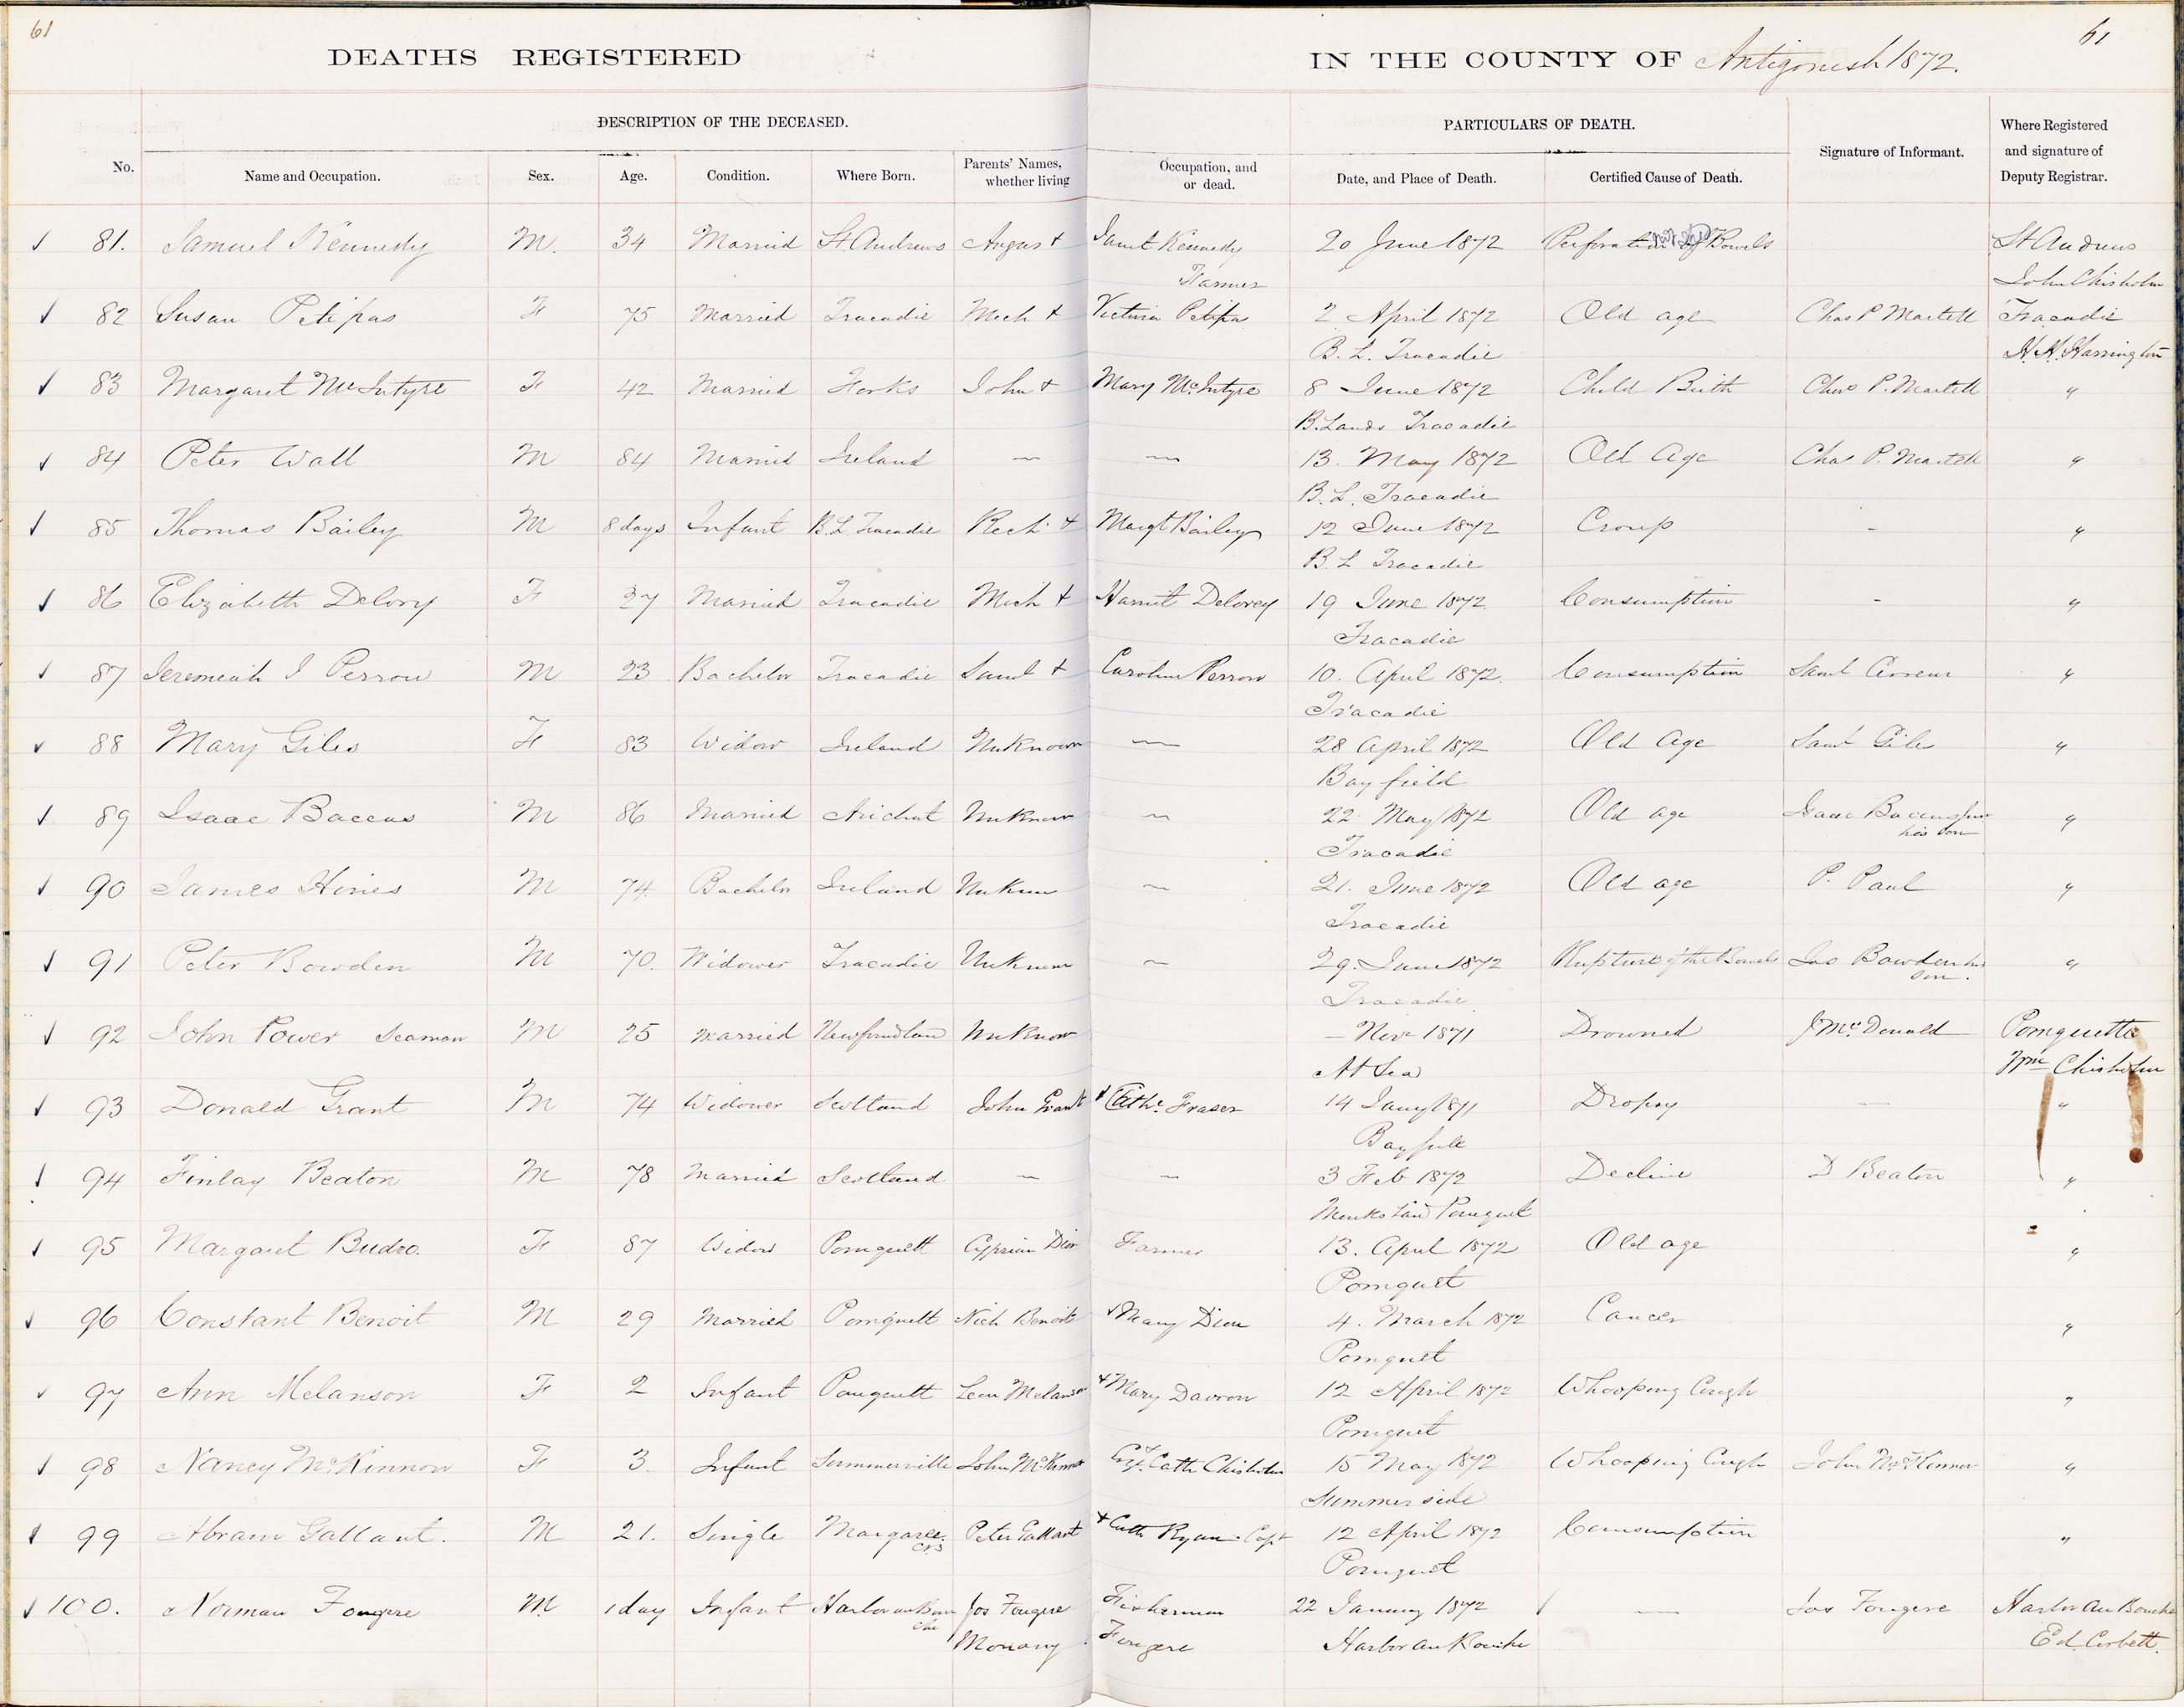 61
61
DEATHS REGISTERED IN THE COUNTY OF Antigonish 1872.
DESCRIPTION OF THE DECEASED. PARTICULARS OF DEATH.
No. Name and Occupation. Sex. Age. Condition. Where Born. Parents' Names, whether living Occupation, and or dead. Date, and Place of Death. Certified Cause of Death. Signature of Informant. Where Registered and signature of Deputy Registrar.
81. Samuel Kennedy M. 34 Married St. Andrews Angus + Janet Kennedy 20 June 1872 Perforation of Bowels St Andrews
Farmer John Chisholm
82 Susan Petipas F 75 Married Tracadie Mich + Victoria Petipa 2 April 1872 Old age Chas P Martell Tracadie
B. L. Tracadie H. H. Harrington
83 Margaret McIntyre F 42 Married Forks John + Mary McIntyre 8 June 1872 Child Birth Chas P. Martell "
B. Lands Tracadie
84 Peter Wall M 84 Married Ireland — — 13. May 1872 Old Age Chas P. Martell "
B. L. Tracadie
85 Thomas Bailey M 8 days Infant B. L. Tracadie Rich + Margt Bailey 12 June 1872 Croup - "
B. L Tracadie
86 Elizabeth Delory F 27 Married Tracadie Mich + Harriet Delorey 19 June 1872 Consumption - "
Tracadie
87 Jeremiah J Perrow M 23 Bachelor Tracadie Saml + Caroline Perrow 10. April 1872. Consumption Saml "
Tracadie
88 Mary Giles F 83 Widow Ireland Unknown — 28 April 1872 Old Age Saml Giles "
Bay field
89 Isaac Baccus M 86 Married Arichat Unknown — 22 May 1872 Old age Isaac Baccus jun "
Tracadie his son
90 James Hines M 74 Bachelor Ireland Unknown — 21. June 1872 Old age P. Paul "
Tracadie
91 Peter Bowden M 70. Widower Tracadie Unknown — 29. June 1872 Rupture of the Bowels Jas Bowden his "
Tracadie son.
92 John Power Seaman M 25 Married Newfoundland Unknown — Nov 1871 Drowned J McDonald Pomquette
At Sea Wm Chisholm
93 Donald Grant M 74 Widower Scotland John Grant + Cathe Fraser 14 Jany 1871 Dropsy — "
Bayfield
94 Finlay Beaton M 78 Married Scotland — — 3 Feb 1872 Decline D Beaton "
Monks Land Pomquet
95 Margaret Budro. F 87 Widow Pomquett Cyprian Dion Farmer 13. April 1872 Old age "
Pomquet
96 Constant Benoit M 29 Married Pomquett Nich Benoit + Mary Dion 4. March 1872 Cancer "
Pomquet
97 Ann Melanson F 2 Infant Pomquett Leon Melanson + Mary Davron 12 April 1872 Whooping Cough "
Pomquet
98 Nancy McKinnon F 3. Infant Summerville John McKinnon Cath Chisholm 15 May 1872 Whooping Cough John McKinnon "
Summer side
99 Abram Gallant. M 21. Single Margaree Peter Gallant + Cath Ryan Capt 12 April 1872 Consumption "
CB Pomquet
100. Norman Fougere M. 1 day Infant Harbor au Bou Jos Fougere Fisherman 22 January 1872 — Jos Fougere Harbor Au Bouche
che Monary Fougere Harbor au Bouche Ed. Corbett.